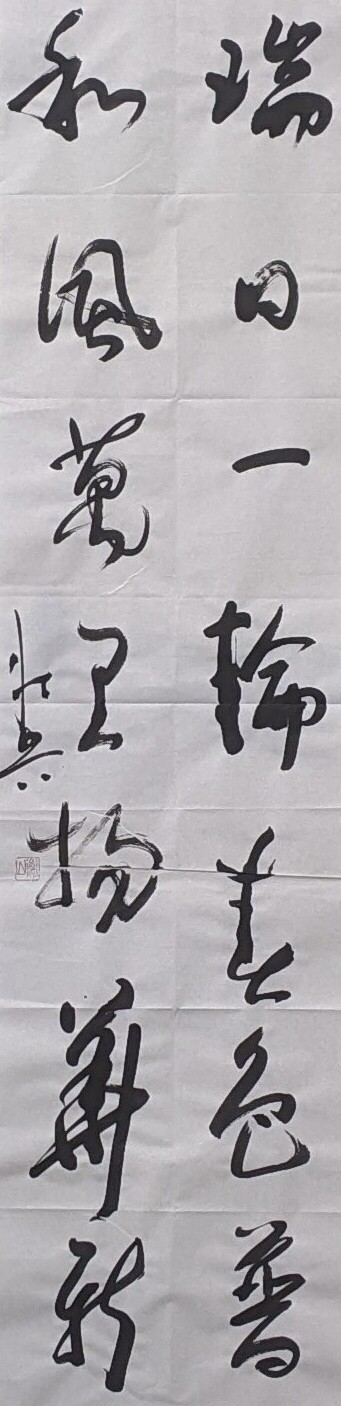 瑞日一輪春色普
和風萬里物華新